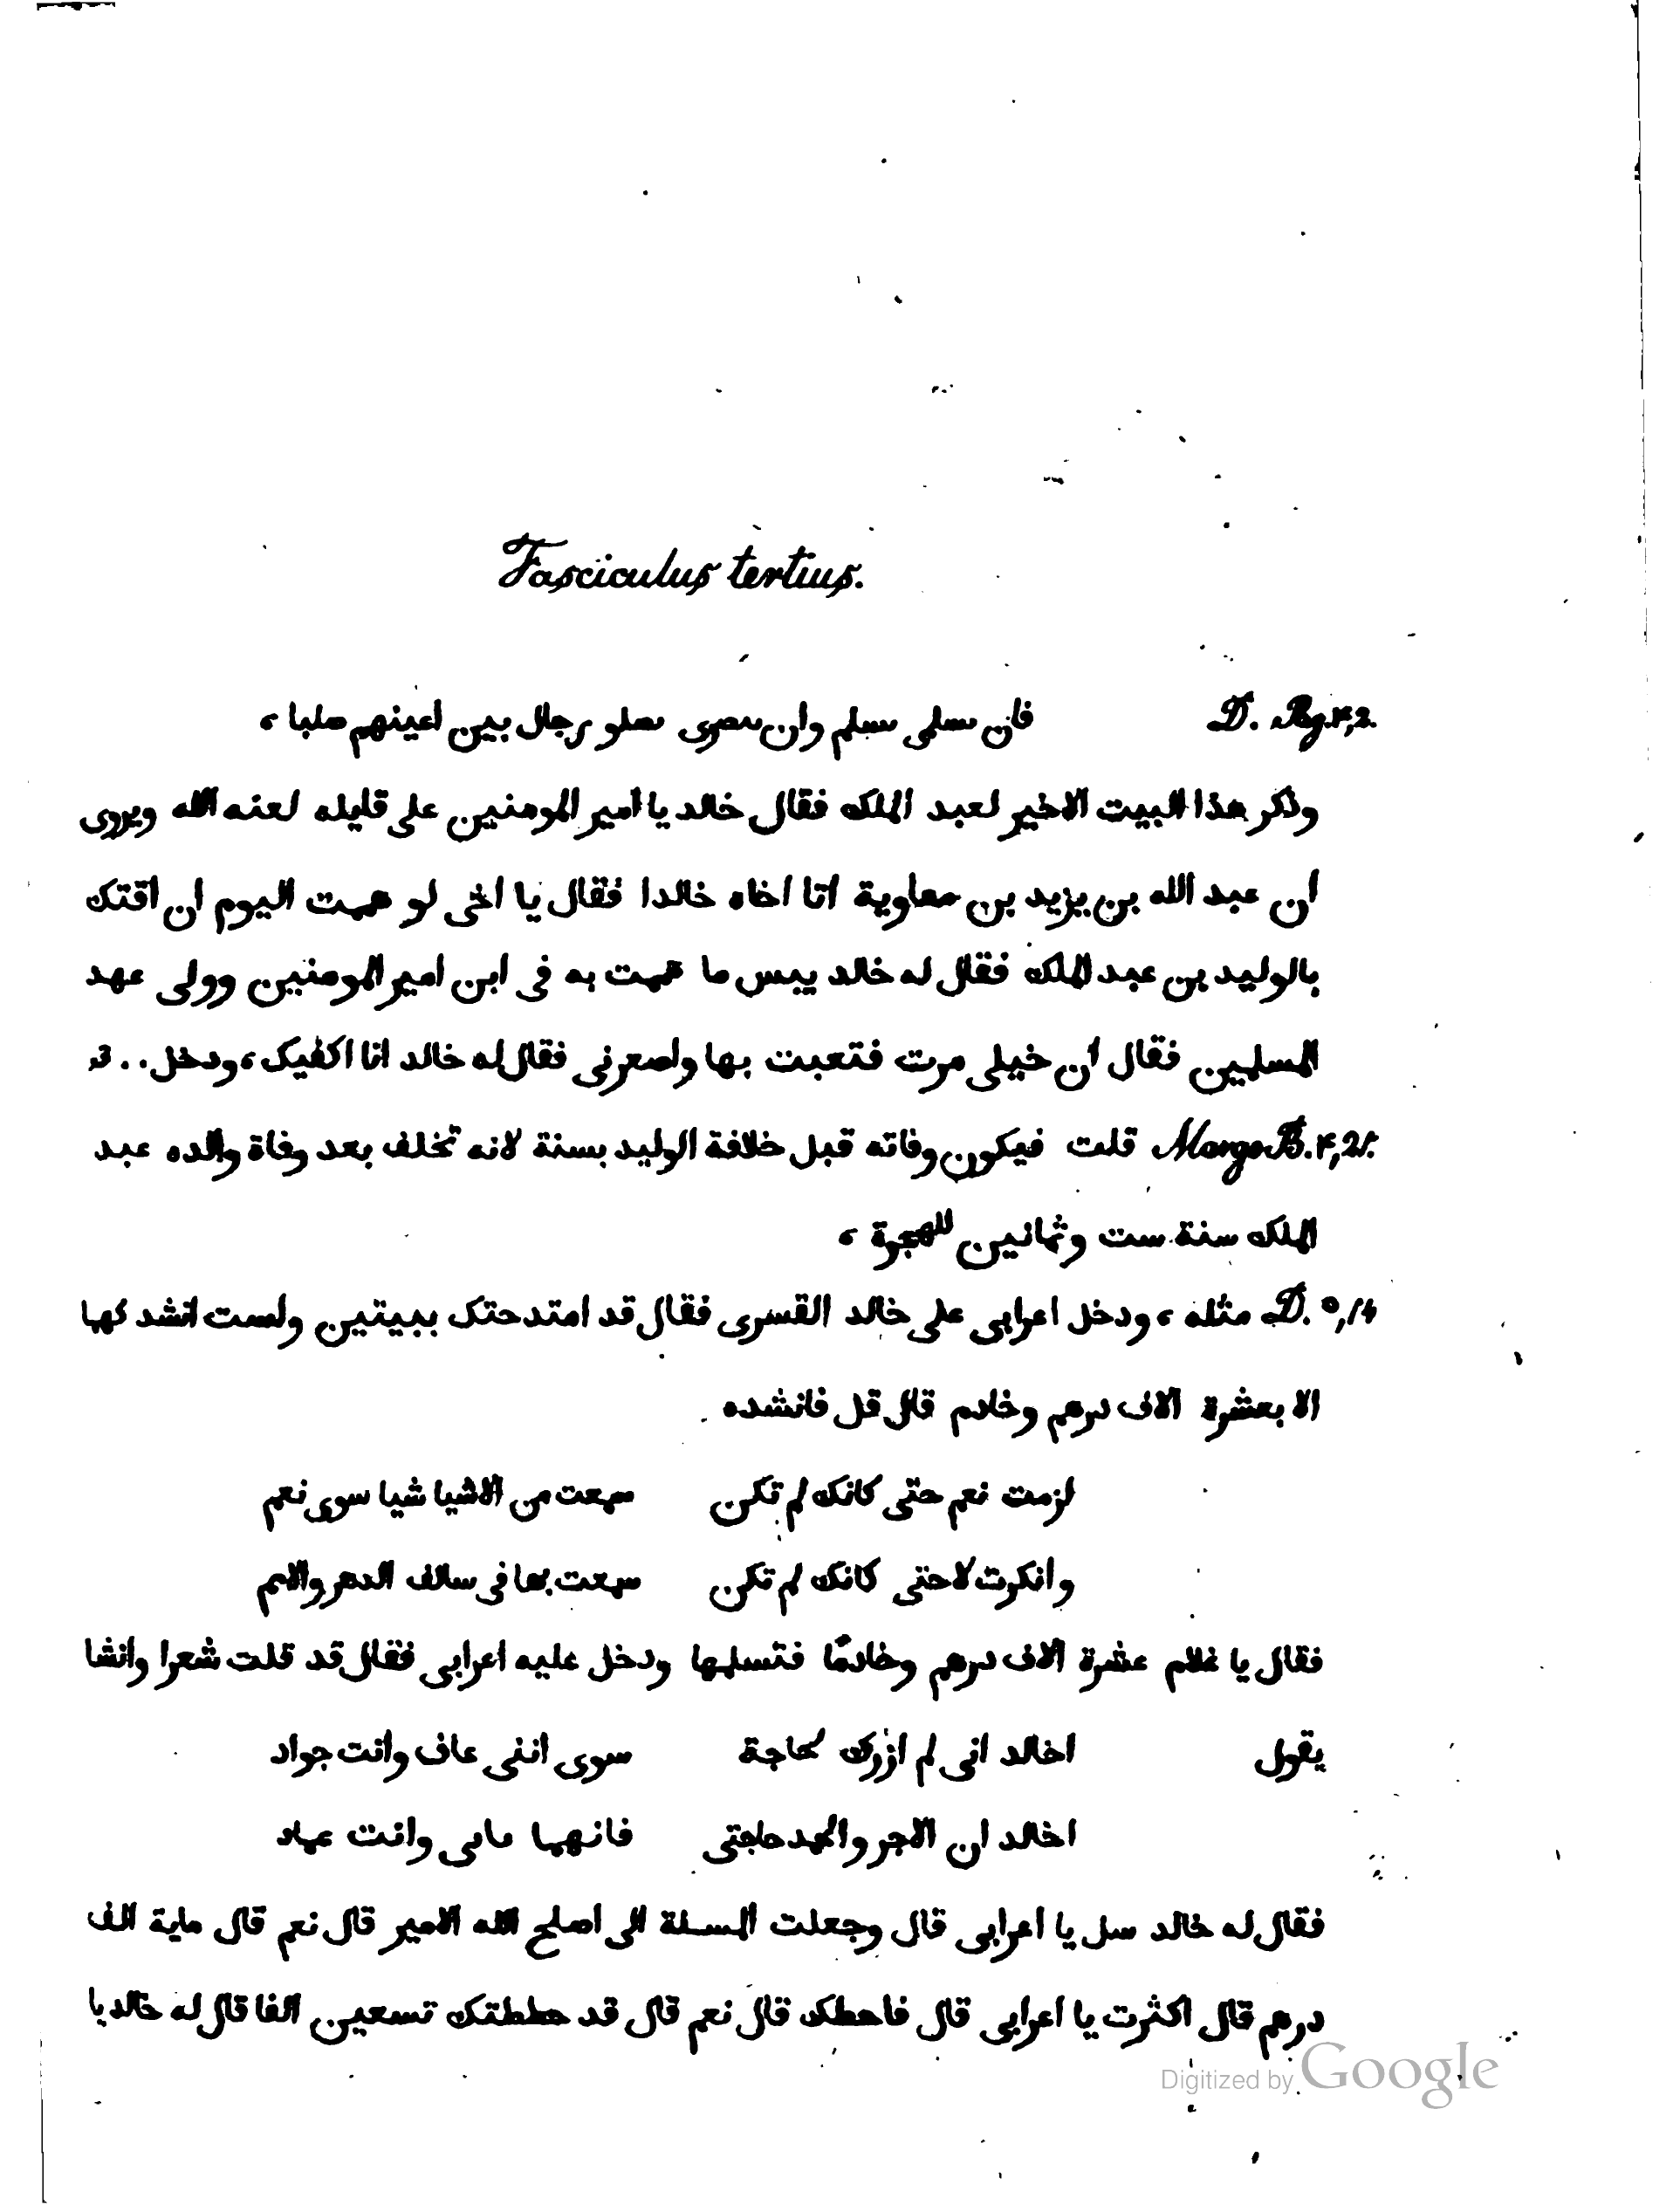 Fasciculus tertius.
D. Pag. ۴,2. فان سلمى سلم وان رجال بين اعينهم صلبا ،
وذكر هذا البيت الاخير لعبد الملك فقال خالد يا امير المومنين على قليله لعنه الله ويروى
ان عبد الله بن يزيد بن معاوية اتا اخاه خالدا فقال يا اخى لو هممت اليوم ان اقتك
بالوليد بن عبد الملك فقال له خالد بيس ما هممت به فى ابن امير المومنين وولى عهد
المسلمين فقال ان خيلى مرت فتعبت بها واصعرنى فقال له خالد انا اكفيك ، ودخل . .
Margo B. ۴,2 قلت فيكون وفاته قبل خلافة الوليد بسنة لانه تخلف بعد وفاة والده عبد
الملك سنة ست وثمانين للهجرة ،
D. ٥,14 مثله ، ودخل اعرابى على خالد القسرى فقال قد امتدحتك ببيتين ولست انشدكها
الا بعشرة الاف درهم وخادم قال قل فانشده
لزمت نعم حتى كانك لم تكن سمعت من الاشيا شيا سوى نعم
وانكرت لا حتى كانك لم تكن سمعت بها فى سالف الدهر والامم
فقال يا غلام عشرة الاف درهم وخادمًا فتسلمها ودخل عليه اعرابى فقال قد قلت شعرا وانشا
يقول اخالد انى لم ازرك لحاجة سوى اننى عاف وانت جواد
اخالد ان الاجر والحمد حاجتى فانهما وانت عماد
فقال له خالد سل يا اعرابى قال وجعلت المسلة الى اصلح الله الامير قال نعم قال ماية الف
درهم قال اكثرت يا اعرابى قال فاحطك قال نعم قال قد حططتك تسعين الفا قال له خالد يا
Digitized by Google